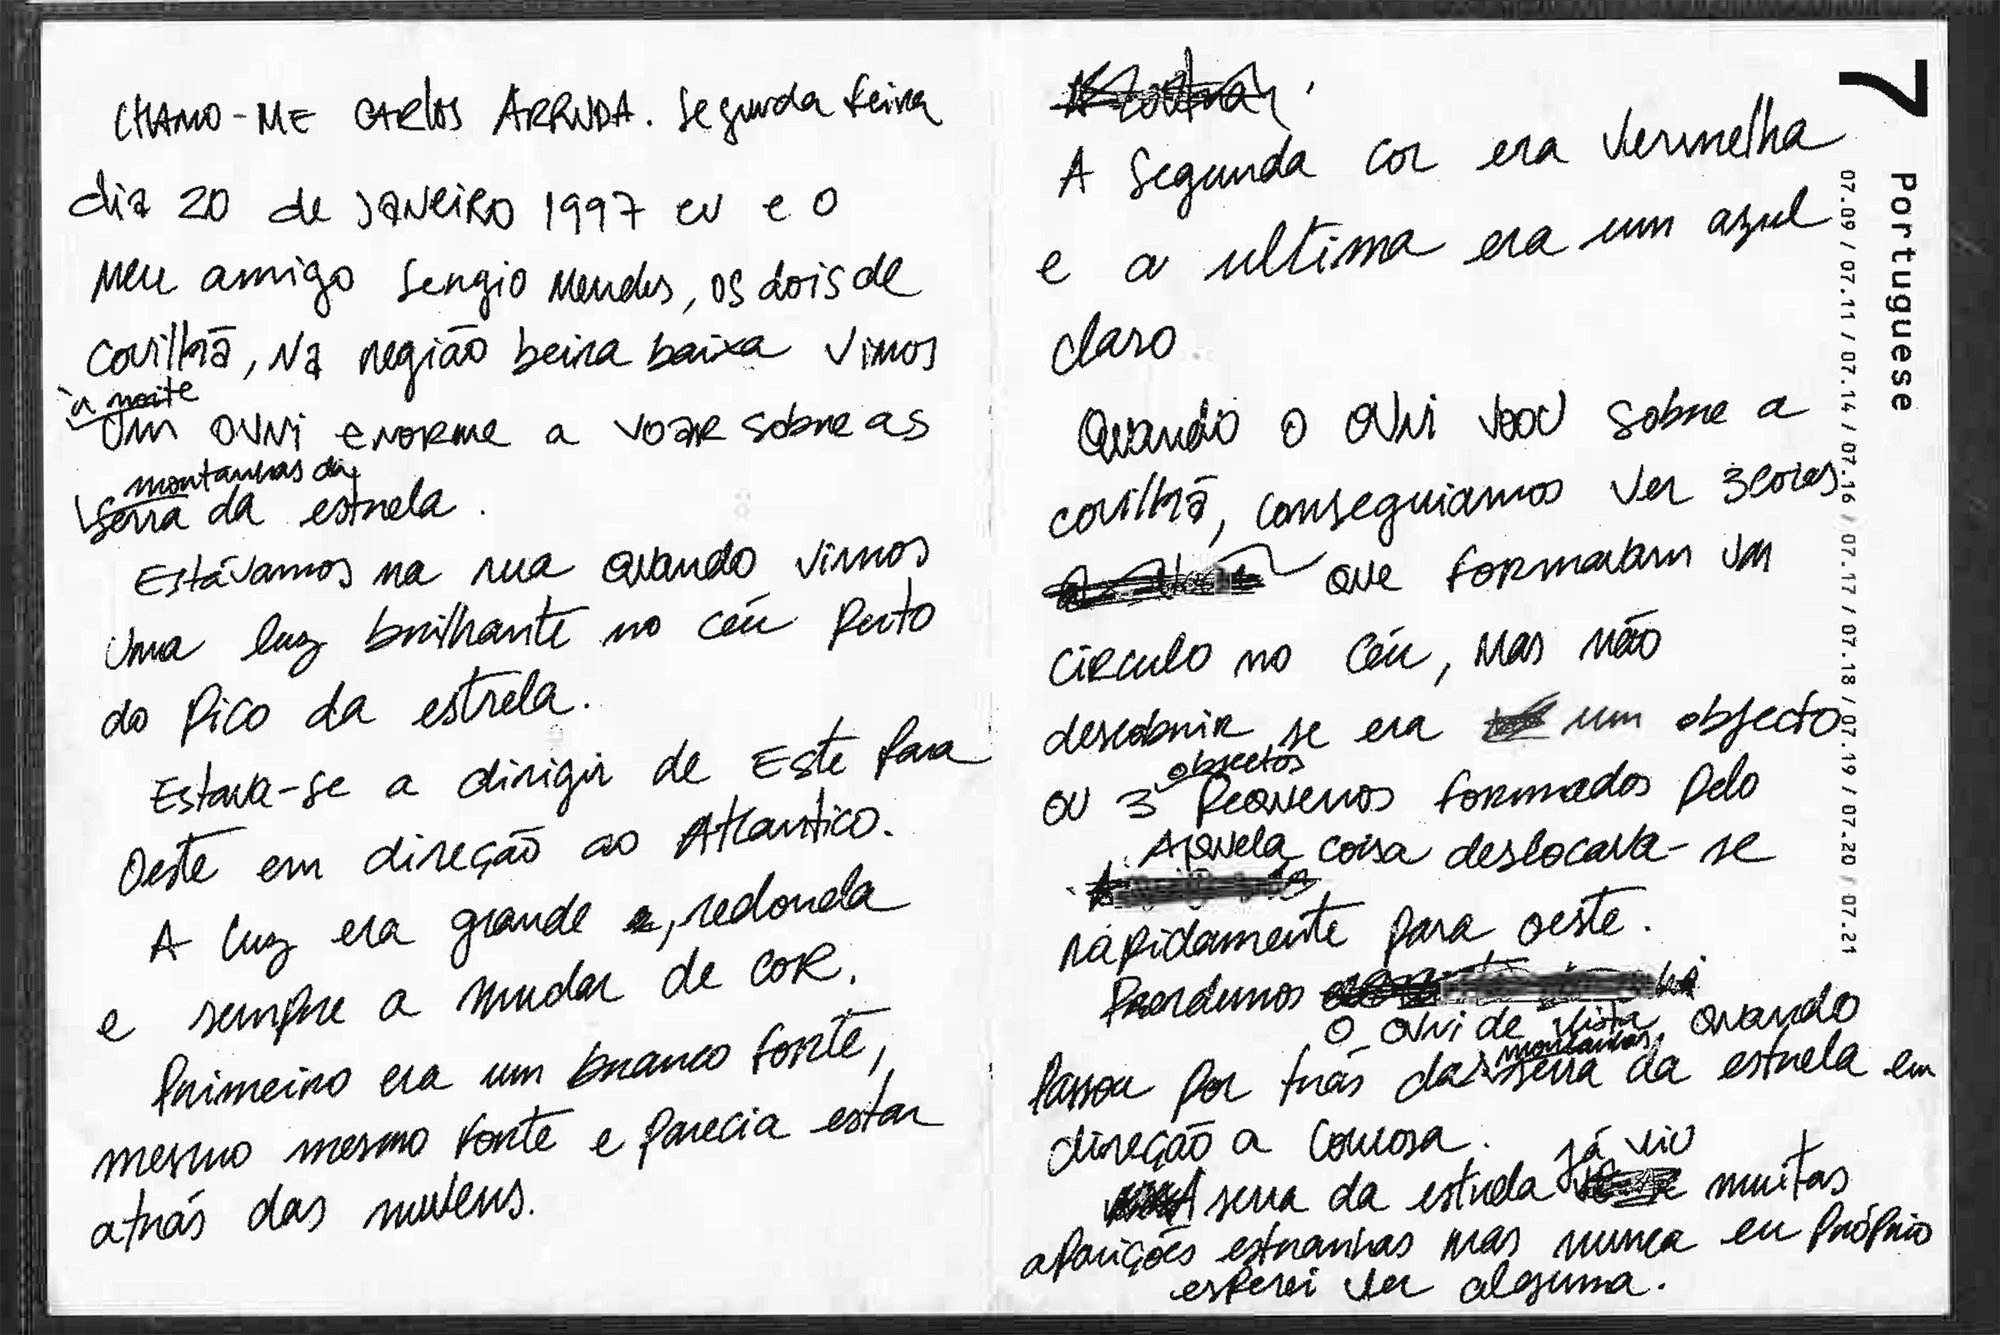 CHAMO-ME CARLOS ARRUDA. Segunda feira
dia 20 de JANEIRO 1997 eu e o
meu amigo Sergio Mendes, os dois de
covilhã, na região beira baixa vimos
à noite
um OVNI enorme a voar sobre as
montanhas da
serra da estrela.
Estávamos na rua quando vimos
uma luz brilhante no céu perto
do pico da estrela.
Estava-se a dirigir de Este para
Oeste em direção ao Atlantico.
A luz era grande, redonda
e sempre a mudar de cor.
Primeiro era um branco forte,
mesmo mesmo forte e parecia estar
atrás das nuvens.
A segunda cor era vermelha
e a ultima era um azul
claro
Quando o OVNI voou sobre a
covilhã, conseguiamos ver 3 cores
que formavam um
circulo no céu, mas não
descobrir se era um objecto
objectos
ou 3 pequenos formados pelo
Aquela coisa deslocava-se
rápidamente para oeste.
Perdemos
o OVNI de vista, quando
montanhas
passou por trás das serra da estrela em
direção a
já viu
serra da estrela muitas
aparições estranhas mas nunca eu próprio
esperei ver alguma.
7
Portuguese
07.09 / 07.11 / 07.14 / 07.16 / 07.17 / 07.18 / 07.19 / 07.20 / 07.21